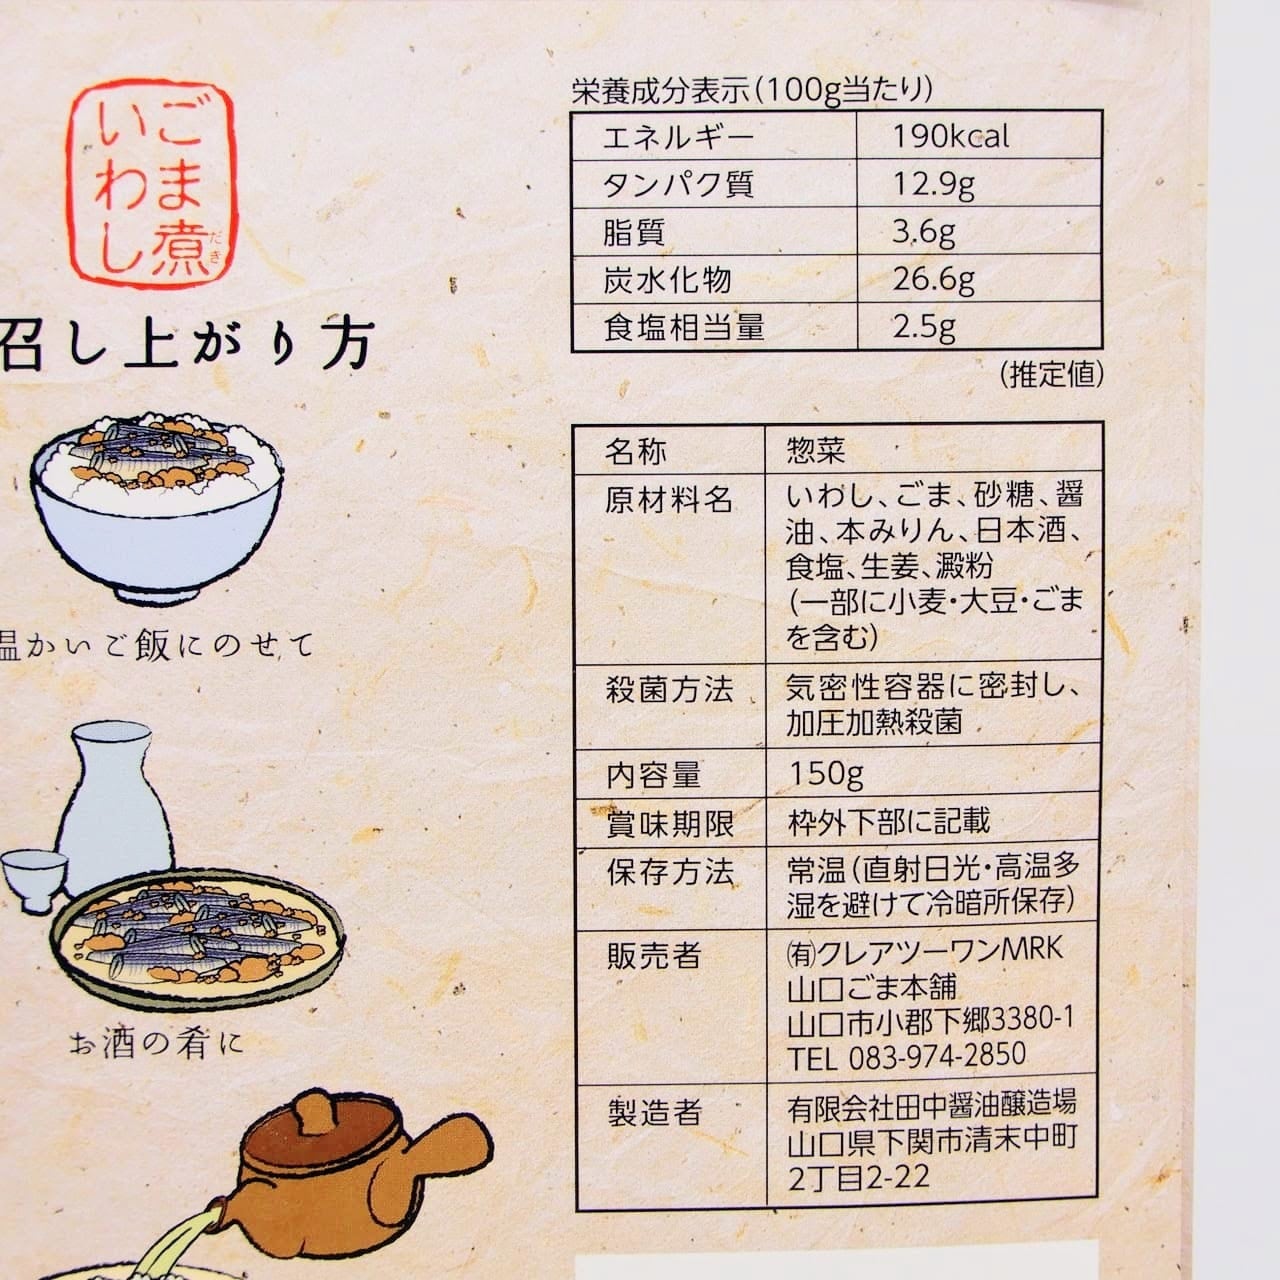 ごま煮
だき
いわし
召し上がり方
温かいご飯にのせて
お酒の肴に
栄養成分表示(100g当たり)
エネルギー 190kcal
タンパク質 12.9g
脂質 3.6g
炭水化物 26.6g
食塩相当量 2.5g
(推定値)
名称 惣菜
原材料名 いわし、ごま、砂糖、醤
油、本みりん、日本酒、
食塩、生姜、澱粉
(一部に小麦・大豆・ごま
を含む)
殺菌方法 気密性容器に密封し、
加圧加熱殺菌
内容量 150g
賞味期限 枠外下部に記載
保存方法 常温(直射日光・高温多
湿を避けて冷暗所保存)
販売者 ㈲クレアツーワンMRK
山口ごま本舗
山口市小郡下郷3380-1
TEL 083-974-2850
製造者 有限会社田中醤油醸造場
山口県下関市清末中町
2丁目2-22